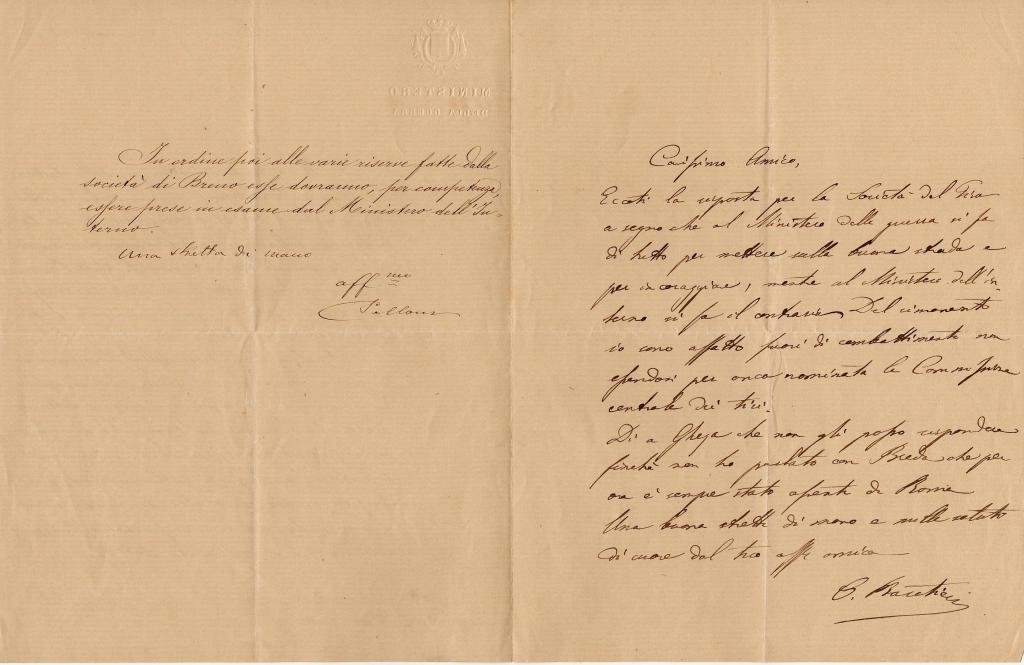 MINISTERO
DELLA GUERRA
In ordine poi alle varie riserve fatte dalla
società di Breno esse dovranno, per competenza,
essere prese in esame dal Ministero dell'In-
terno.
Una stretta di mano
aff.mo
Pelloux
Carissimo Amico,
Eccoti la risposta per la Società del Tiro
a segno che al Ministero della guerra si fa
di tutto per mettere sulla buona strada e
per incoraggiare, mentre al Ministero dell'in-
terno si fa il contrario. Del rimanente
io sono affatto fuori di combattimento non
essendosi per anco nominata la Commissione
centrale dei tiri.
Di a Gheza che non gli posso rispondere
finchè non ho parlato con Breda che per
ora è sempre stato assente da Roma
Una buona stretta di mano e mille saluti
di cuore dal tuo aff. amico